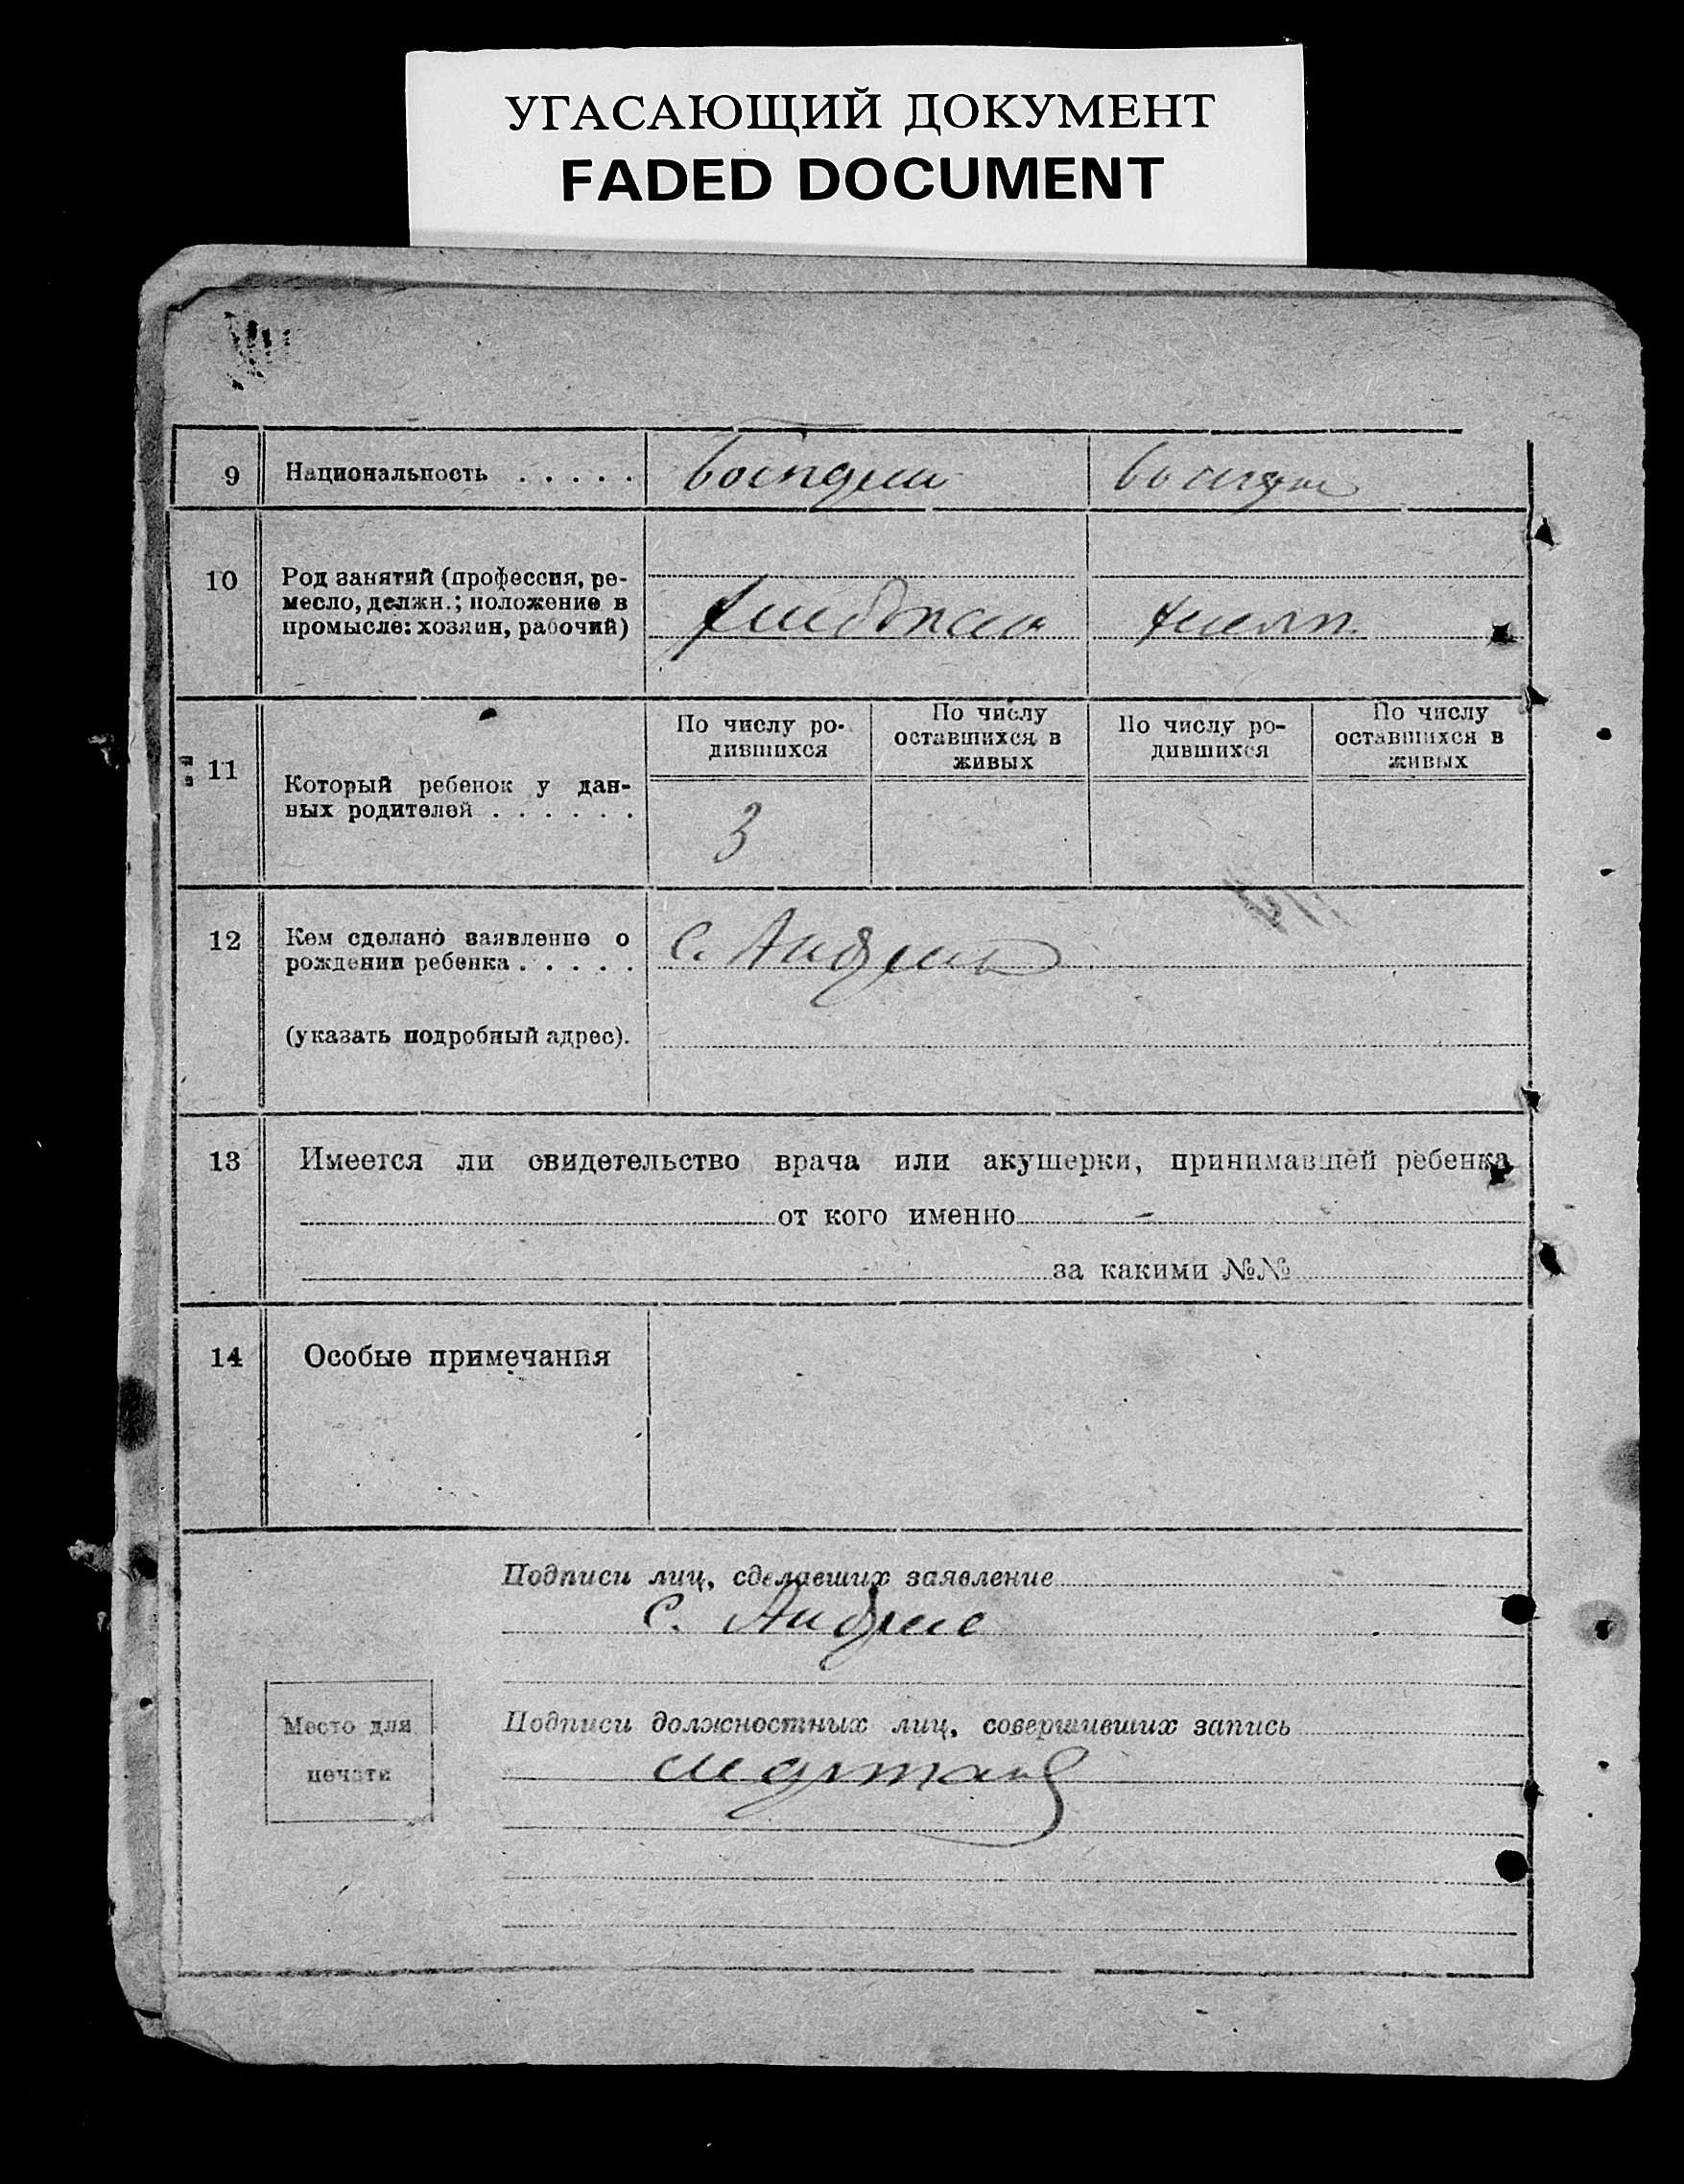 УГАСАЮЩИЙ ДОКУМЕНТ
FADED DOCUMENT
9 Национальность . . . . .
10 Род занятий (профессия, ре-
месло, должн.; положение в
промысле: хозяин, рабочий)
11 Который ребенок у дан-
ных родителей . . . . . .
По числу ро-
дившихся
По числу
оставшихся в
живых
По числу ро-
дившихся
По числу
оставшихся в
живых
3
12 Кем сделано заявление о
рождении ребенка . . . . .
С.
(указать подробный адрес).
13 Имеется ли свидетельство врача или акушерки, принимавшей ребенка
от кого именно
за какими №№
14 Особые примечания
Подписи лиц, сделавших заявление
С.
Место для
печати
Подписи должностных лиц, совершивших запись